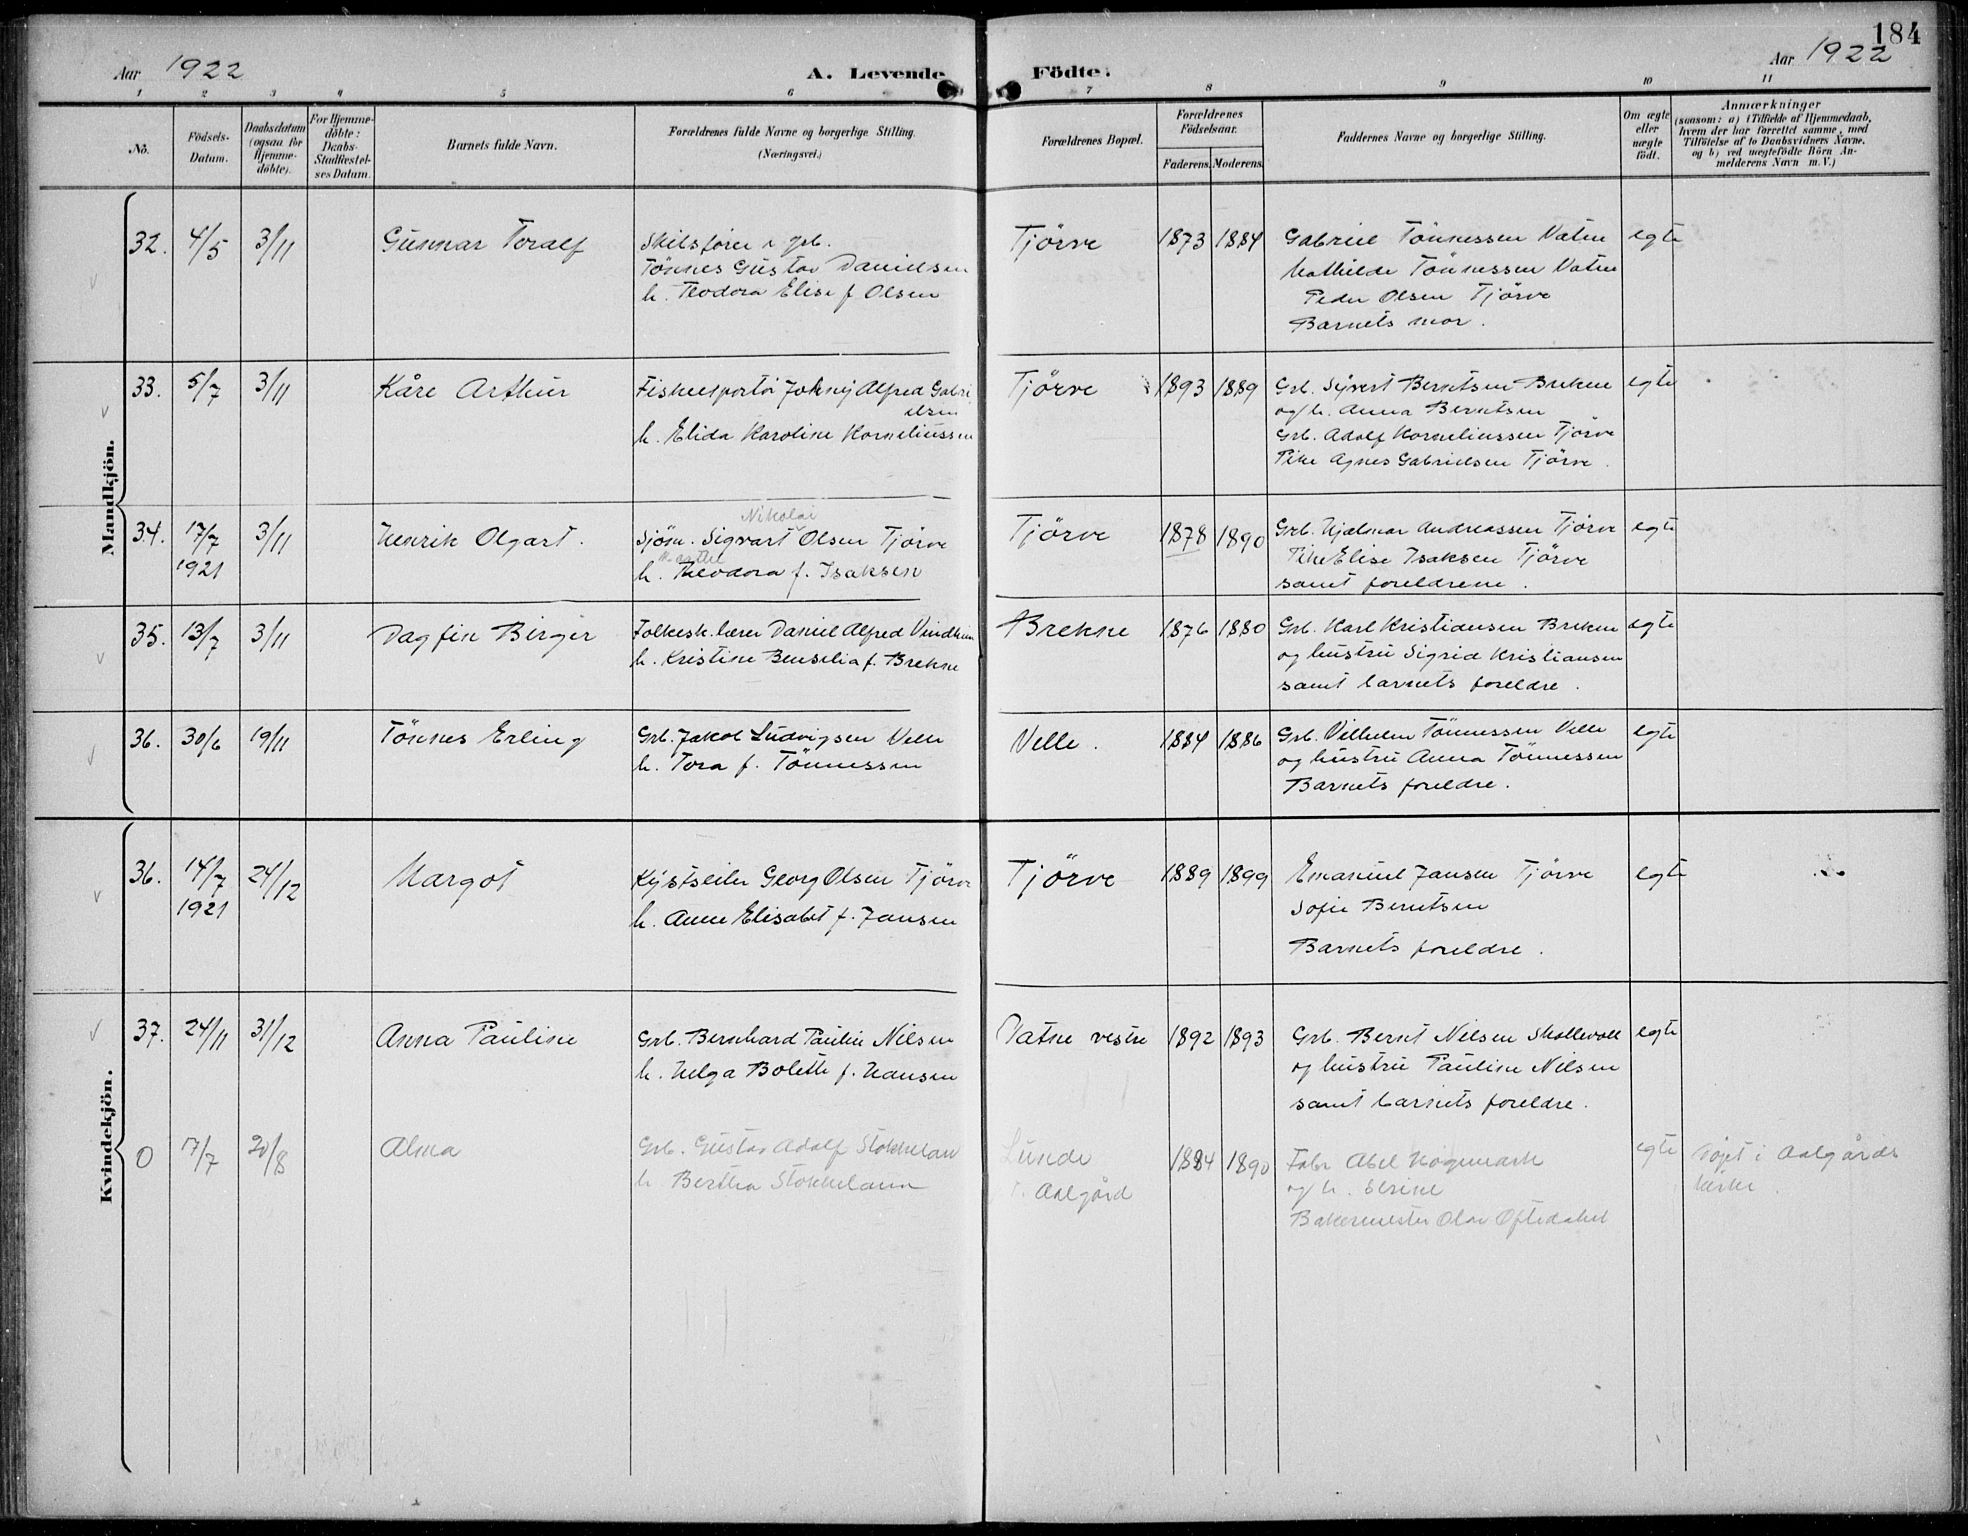 184
Aar 1922
A. Levende Födte.
Aar 1922
1 2 3 4 5 6 7 8 9 10 11
No.
Födsels-
Datum.
Daabsdatum
(ogsaa for
Hjemme-
döbte).
For Hjemme-
döbte:
Daabs-
Stadfæstel-
ses Datum.
Barnets fulde Navn.
Forældrenes fulde Navne og borgerlige Stilling.
(Næringsvei.)
Forældrenes Bopæl.
Forældrenes
Födselsaar.
Faderens. Moderens.
Faddernes Navne og borgerlige Stilling.
Om ægte
eller
uægte
födt.
Anmærkninger
(saasom: a) i Tilfælde af Hjemmedaab,
hvem der har forrettet samme, med
Tilföielse af to Daabsvidners Navne,
og b) ved uægtefödte Börn An-
melderens Navn m. V.)
Mandkjön.
32. 4/5 3/11 Gunnar Toralf
Skibsfører & grb.
Tönnes Gustav Danielsen
h. Teodora Elise f. Olsen
Tjörve 1873 1884
Gabriel Tönnessen Vatne
Mathilde Tönnessen Vatne
Peder Olsen Tjörve
Barnets mor.
egte
33. 5/7 3/11 Kåre Arthur
Fiskeexportör Johnny Alfred Gabri
elsen
h. Elida Karoline Korneliussen
Tjörve 1893 1889
Grb. Sivert Berntsen Brekne
og h. Anna Berntsen
Grb. Adolf Korneliussen Tjörve
Pike Agnes Gabrielsen Tjörve.
egte
34. 17/7 1921 3/11 Henrik Olgart.
Nikolai
Sjöm. Sigvart Olsen Tjörve
h. Theodora f. Isaksen
Tjörve 1878 1890
Grb. Hjalmar Andreassen Tjörve
Pike Elise Isaksen Tjörve
samt foreldrene.
egte
35. 13/7 3/11 Dagfin Birger
Folkesk.lærer Daniel Alfred Vindheim
h. Kristine Benselia f. Brekne
Brekne 1876 1880
Grb. Karl Kristiansen Brekne
og hustru Sigrid Kristiansen
samt barnets foreldre.
egte
36. 30/6 19/11 Tönnes Erling
Grb. Jakob Ludvigsen Velle
h. Tora f. Tönnessen
Velle. 1884 1886
Grb. Vilhelm Tönnessen Velle
og hustru Anna Tönnessen
Barnets foreldre.
egte
Kvindekjön.
36. 14/7 1921 24/12 Margot
Kystseiler Georg Olsen Tjörve
h. Anne Elisabet f. Jansen
Tjörve 1889 1899
Emanuel Jansen Tjörve
Sofie Berntsen
Barnets foreldre.
egte
37. 24/11 31/12 Anna Pauline
Grb. Bernhard Paulin Nilsen
h. Helga Bolette f. Hansen
Vatne vestre 1892 1893
Grb. Bernt Nilsen Skollevoll
og hustru Pauline Nilsen
samt barnets foreldre.
egte
0 17/7 20/8 Alma
Grb. Gustav Adolf Stokkeland
h. Bertha Stokkeland
Lunde
Aalgård
1884 1890
Fabr Abel Høgemark
og h. Serine
Bakermester Olav Oftedahl
egte
døpt i Aalgårds
kirke